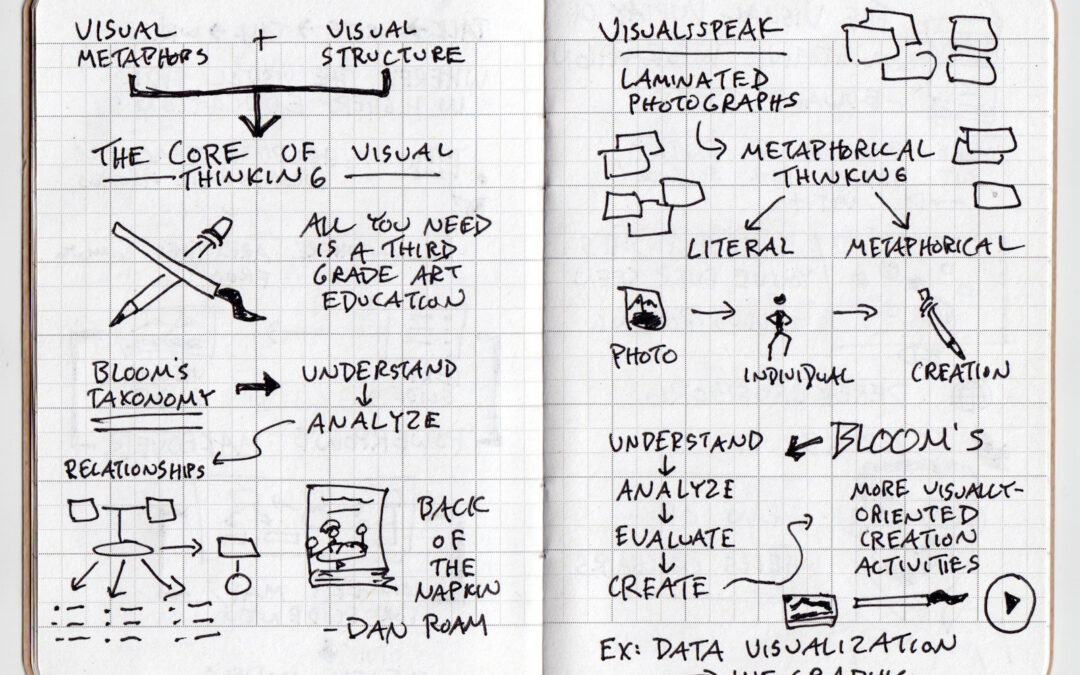 VISUAL
METAPHORS
+
VISUAL
STRUCTURE
THE CORE OF VISUAL
THINKING
ALL YOU NEED
IS A THIRD
GRADE ART
EDUCATION
BLOOM'S
TAXONOMY
UNDERSTAND
ANALYZE
RELATIONSHIPS
BACK
OF
THE
NAPKIN
- DAN ROAM
VISUALSSPEAK
LAMINATED
PHOTOGRAPHS
METAPHORICAL
THINKING
LITERAL
METAPHORICAL
PHOTO
INDIVIDUAL
CREATION
UNDERSTAND
BLOOM'S
ANALYZE
EVALUATE
CREATE
MORE VISUALLY-
ORIENTED
CREATION
ACTIVITIES
EX: DATA VISUALIZATION